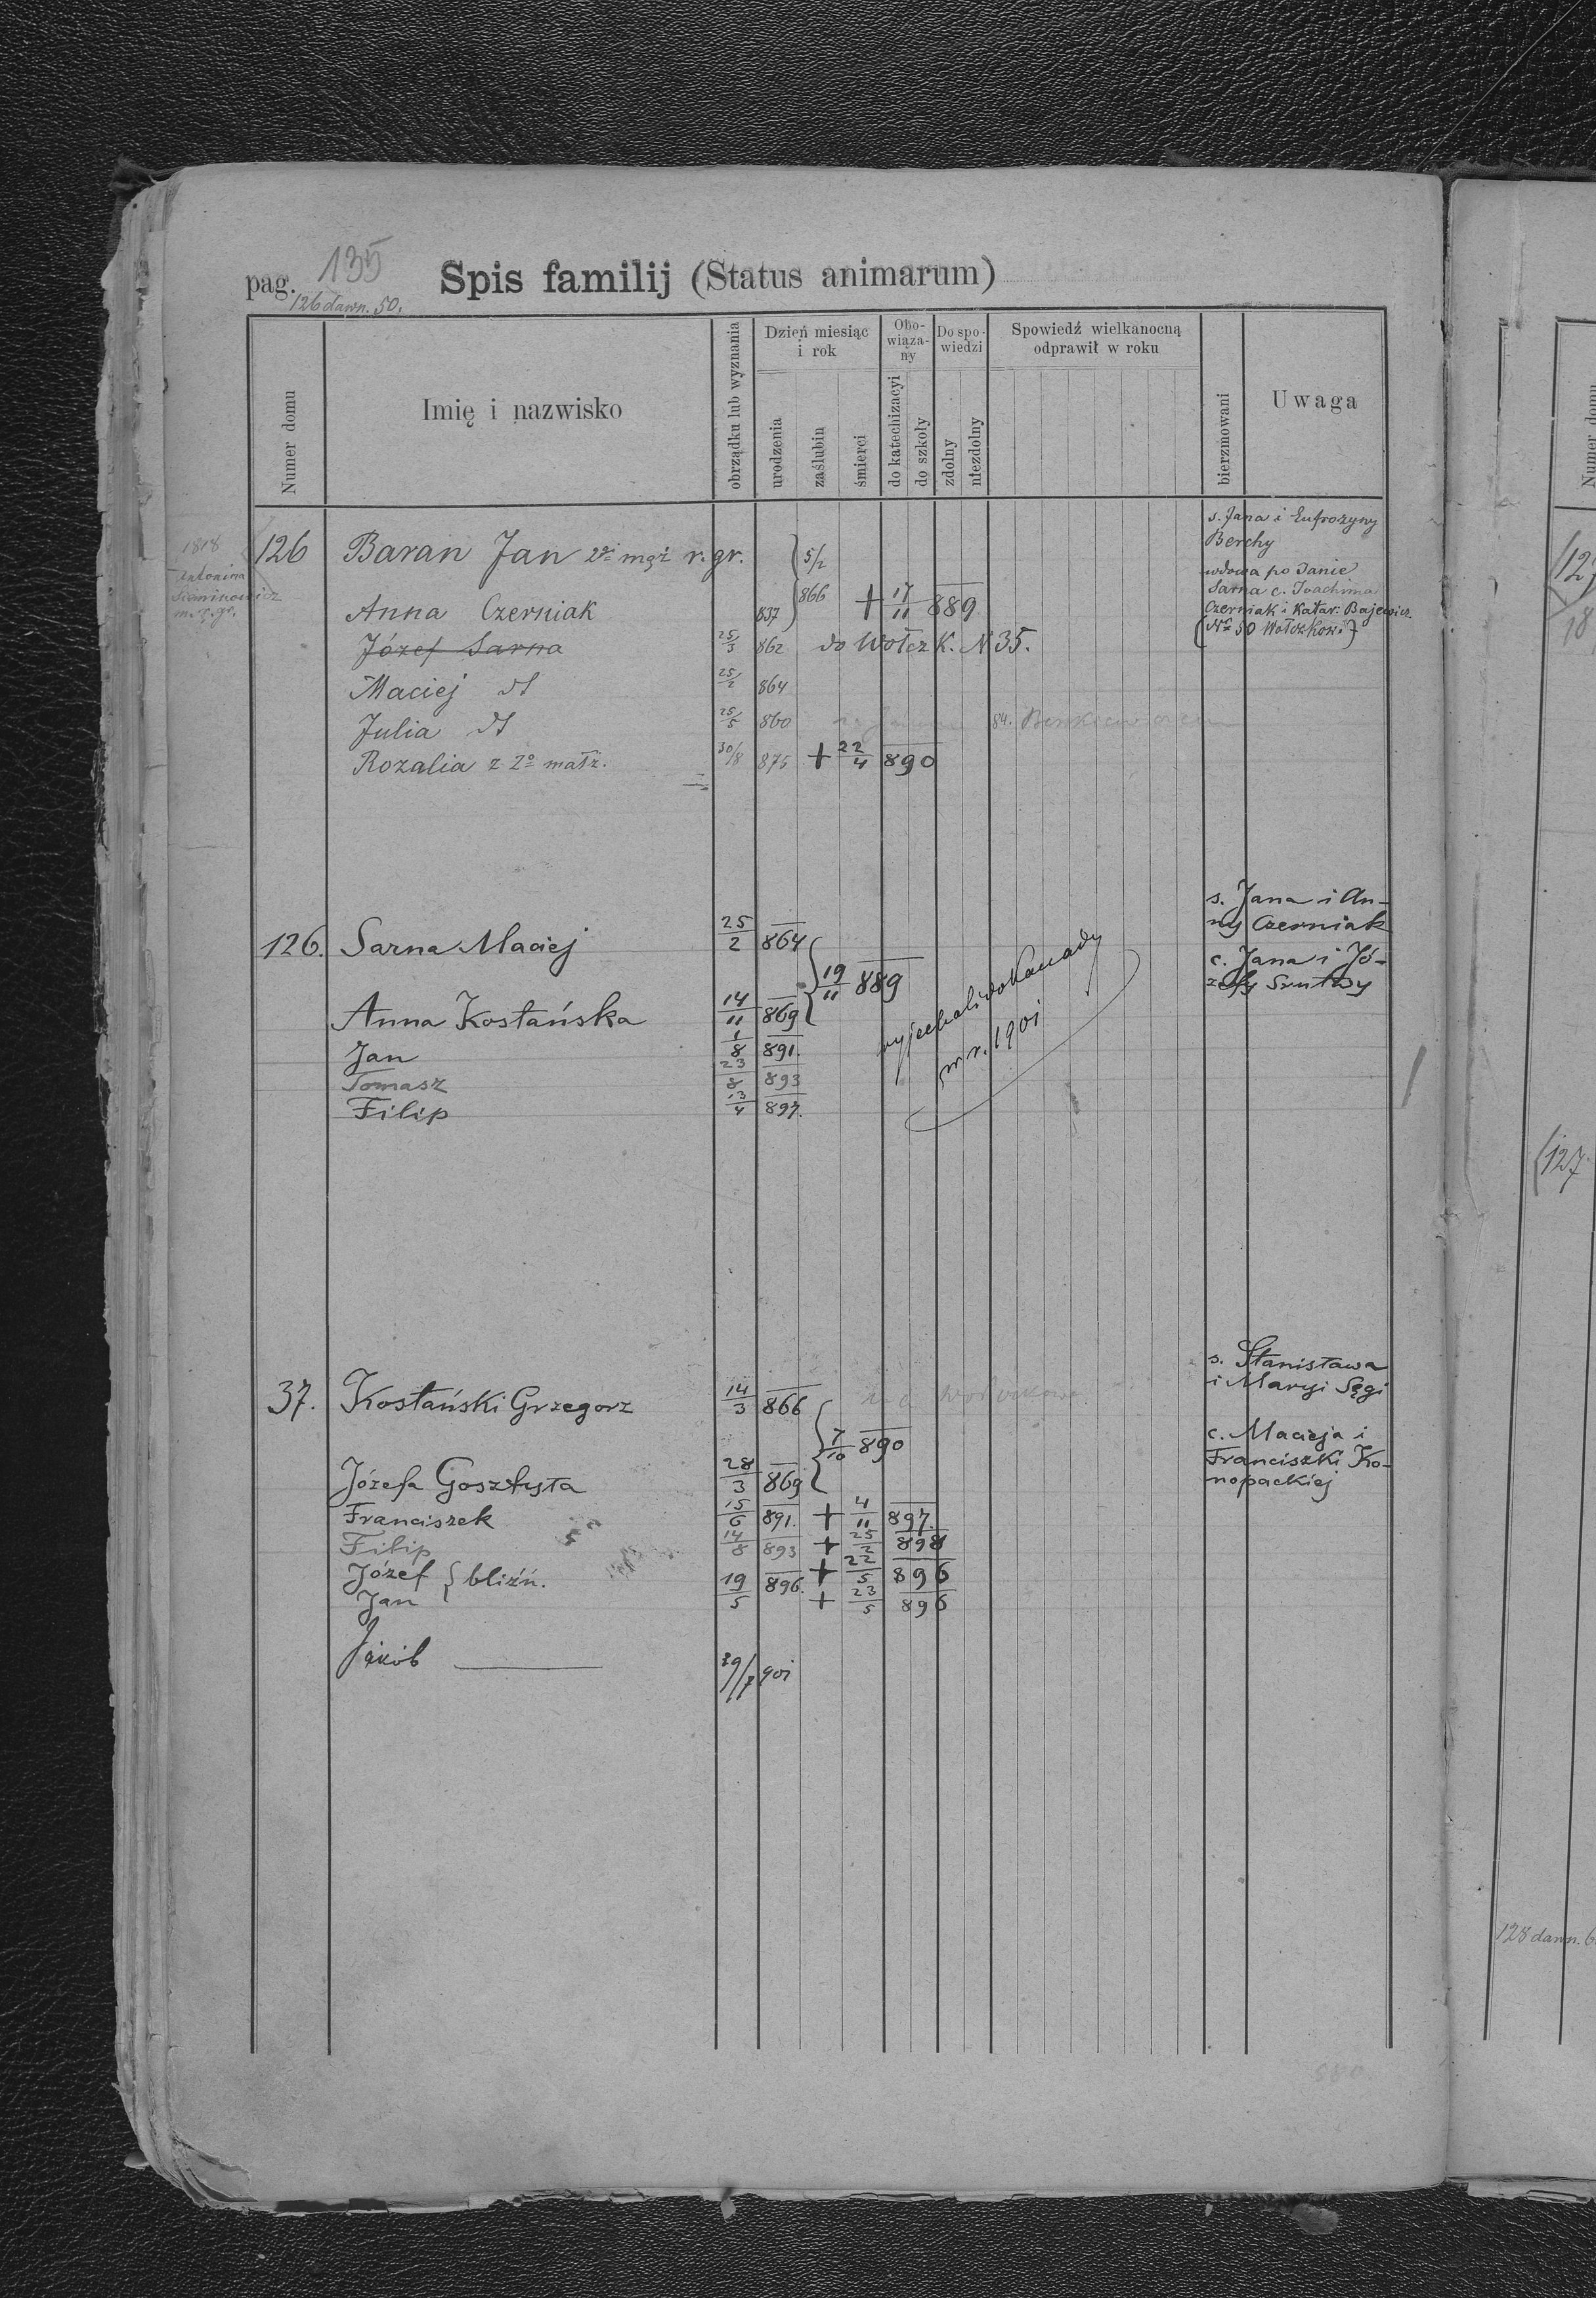 pag. 135
126 dawn. 50.
Spis familij (Status animarum)
Numer domu
Imię i nazwisko
obrządku lub wyznania
Dzień miesiąc i rok
urodzenia
zaślubin
śmierci
Obo-
wiąza-
ny
do katechizacyi
do szkoły
Do spo-
wiedzi
zdolny
niezdolny
Spowiedź wielkanocną
odprawił w roku
bierzmowani
Uwaga
1818
Antonina
m. r. gr.
126 Baran Jan 2gi mąż r. gr. 5/2 s. Jana i Eufrozyny
Berchy
Anna Czerniak 837 866 + 17/11 889 wdowa po Janie
Sarna c. Joachima
Czerniak i Katar. Bajewicz
(No 50 Wołczkow.)
Józef Sarna 25/3 862 do Wołczk. N 35.
Maciej dt 25/2 864
Julia dt 25/5 860 84.
Rozalia z 2o małż. 30/8 875 + 22/4 890
126. Sarna Maciej 25/2 864 s. Jana i An-
ny Czerniak
19/11 889
Anna Kostańska 14/11 869 c. Jana i Jó-
zefy Srutwy
wyjechali do Kanady
w r. 1901
Jan 1/8 891.
Tomasz 23/8 893
Filip 13/4 897.
37. Kostański Grzegorz 14/3 866 s. Stanisława
i Maryi Sęgi
7/10 890
Józefa Gosztyła 28/3 869 c. Macieja i
Franciszki Ko-
nopackiej
Franciszek 15/6 891. + 4/11 897.
Filip 14/8 893 + 25/2 898
Józef } bliźń. 19/5 896. + 22/5 896
Jan + 23/5 896
Jakób 29/7 901
Numer domu
(127
18
(127
128 dawn. 6